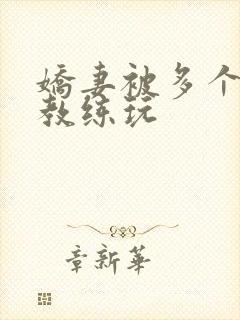 嬌妻被多个
教练玩
章新華